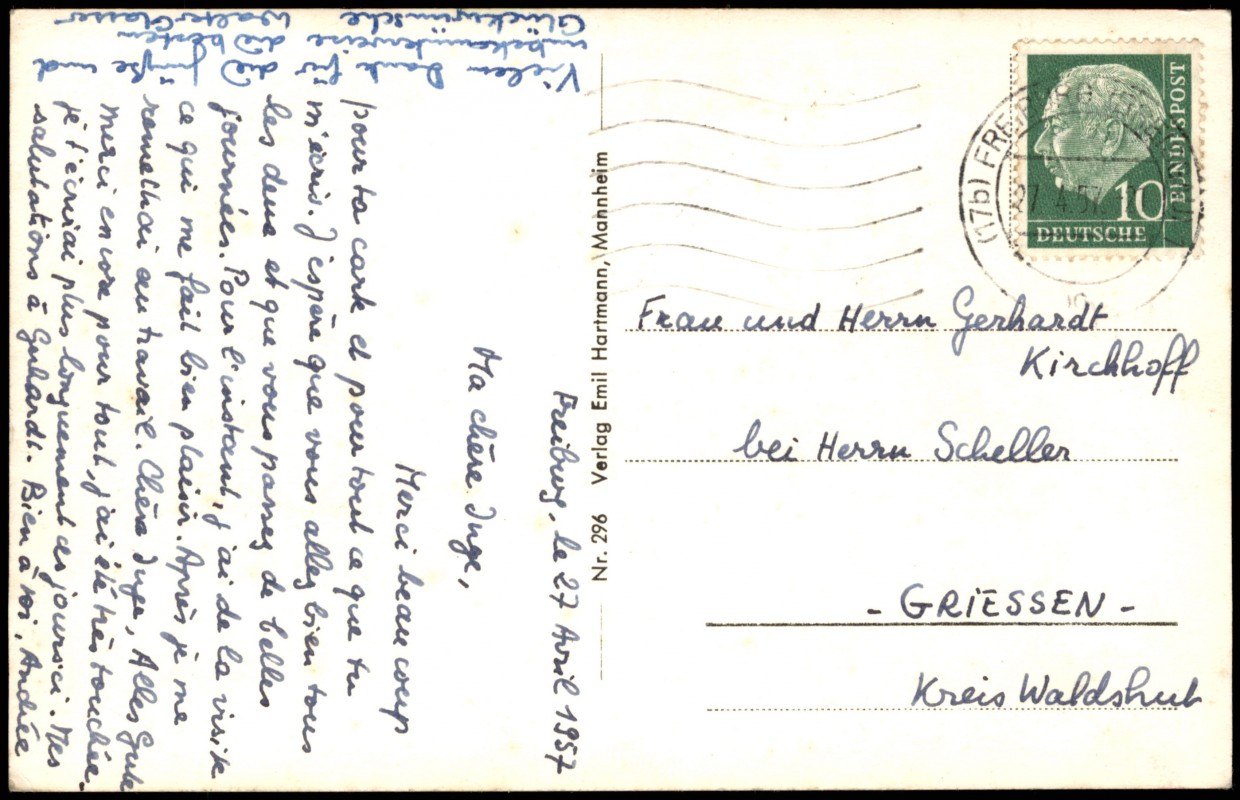 Freiburg, le 27 Avril 1957
Ma chère Inge,
Merci beaucoup
pour ta carte et pour tout ce que tu
m'écris. J'espère que vous allez bien tous
les deux et que vous passez de belles
journées. Pour l'instant, j'ai de la visite
ce qui me fait bien plaisir. Après je me
remettrai au travail. Chère Inge, Alles Gute
Merci encore pour tout, j'ai été très touchée.
je t'écrirai plus longuement ces jours-ci. Mes
salutations à Gerhardt. Bien à toi, Andrée
Vielen Dank für die Grüße und
unbekannterweise die besten
Glückwünsche
Walter Glasser
Nr. 296 Verlag Emil Hartmann, Mannheim
(17b) FREIBURG
27. 4. 57
10
DEUTSCHE
BUNDESPOST
Frau und Herrn Gerhardt
Kirchhoff
bei Herrn Scheller
- GRIESSEN -
Kreis Waldshut